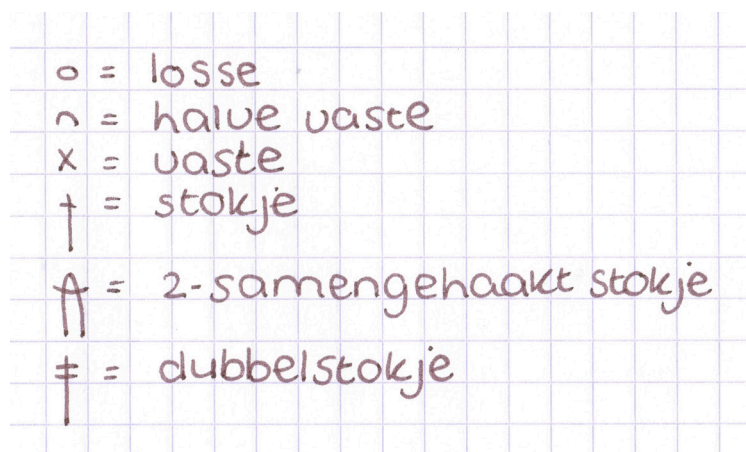 o = losse
∩ = halve vaste
x = vaste
† = stokje
= 2-samengehaakt stokje
‡ = dubbelstokje